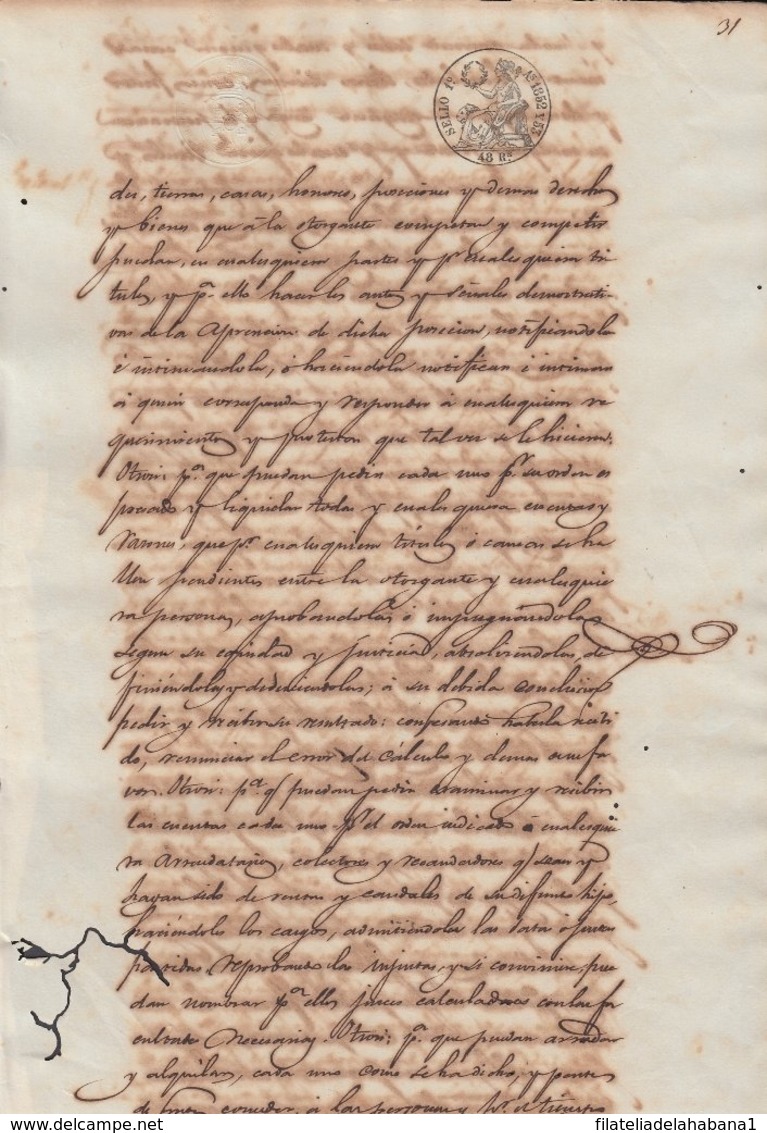 31
SELLO 1º AS 1852 Y 53.
48 Rs
des, tierras, casas, honores, posesiones y demas derechos
y bienes que á la otorgante competan y competir
puedan, en cualesquiera partes y pr cualesquiera tí
tulos, y pª ello hacer los autos y señales demostrati
vas de la aprencion de dicha posecion, notificandola
é intimandola, ó haciéndola notificar é intimar
á quien corresponda y responder á cualesquiera re
querimientos y protestas que tal vez se le hicieren.
Otrosi: pª que puedan pedir cada uno pr su orden es
presado y liquidar todas y cuales quiera cuentas y
razones, que pr cualesquiera títulos ó causas se ha
llen pendientes entre la otorgante y cualesquie
ra personas, aprobandolas ó impugnándolas
segun su equidad y justicia, absolviendolas, de
finiéndolas y deduciendolas; á su debida conclusion
pedir y recibir su resultado: confesando haberla recibi
do, renunciar el error del cálculo y demas su fa
vor. Otrosi: pª q puedan pedir examinar y recibir
las cuentas cada uno pr el orden indicado á cualesquie
ra Arrendatarios, colectores y recaudadores q sean y
hayan sido de rentas y caudales de su difunto hijo,
haciendoles los cargos, admitiéndoles las data ó justas
partidas, reprobando las injustas, y si conviniere pue
dan nombrar pª ellos jueces calculadores con las fa
cultades necesarias. Otrosi: pª que puedan arrendar
y alquilar, cada uno como se ha dicho, y
de conceder, á las personas y pr el tiempo
filateliadelahabana1